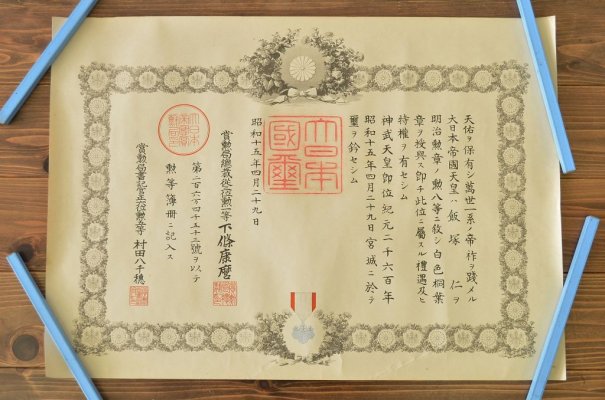 天佑ヲ保有シ萬世一系ノ帝祚ヲ踐メル
大日本帝國天皇ハ飯塚仁ヲ
明治勲章ノ勲八等ニ敍シ白色桐葉
章ヲ授與ス即チ此位ニ屬スル禮遇及ヒ
特權ヲ有セシム
神武天皇即位紀元二千六百年
昭和十五年四月二十九日宮城ニ於テ
璽ヲ鈐セシム
大日本國璽
昭和十五年四月二十九日
賞勲局總裁從三位勲一等下條康麿
第二百六万四千五十二號ヲ以テ
勲等簿冊ニ記入ス
賞勲局書記官正六位勲五等村田八千穂